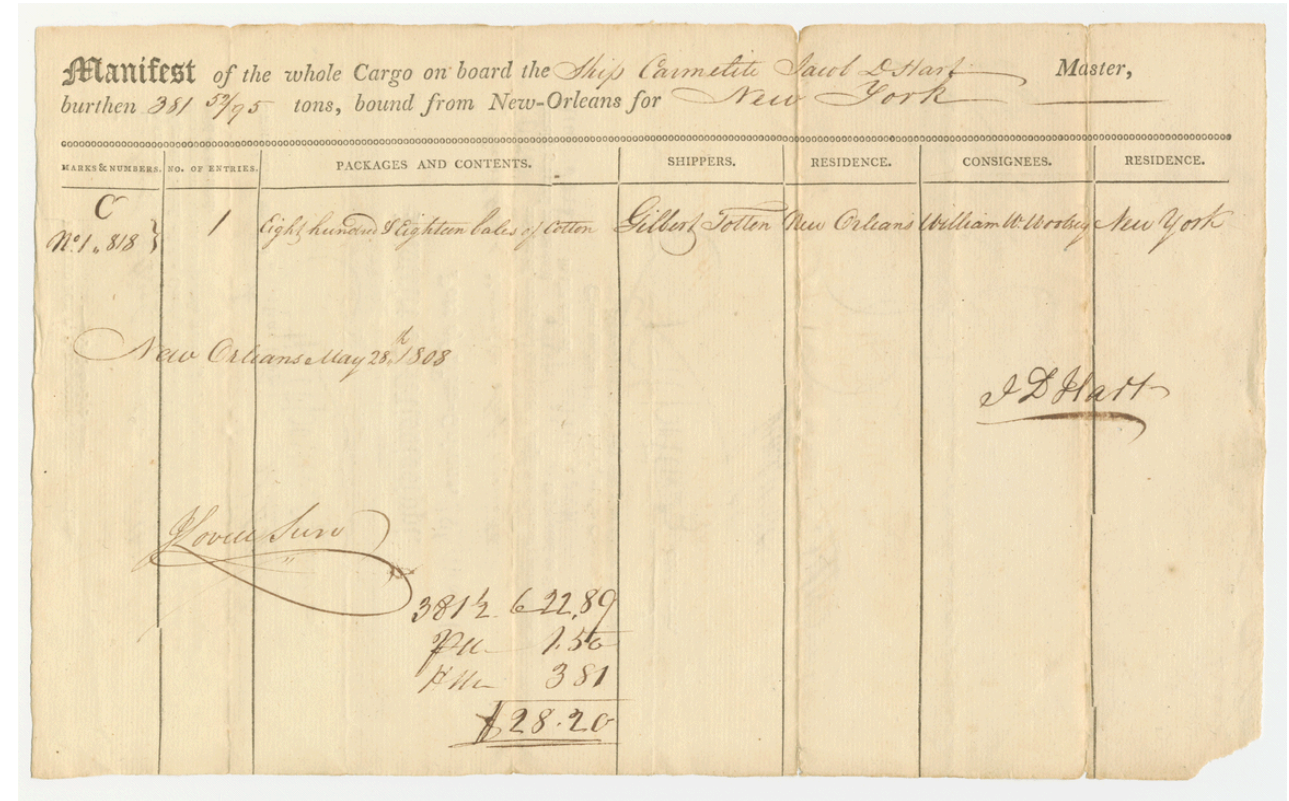 Manifest of the whole Cargo on board the Ship Carmelite Jacob D Hart Master,
burthen 381 52/95 tons, bound from New-Orleans for New York
MARKS & NUMBERS. NO. OF ENTRIES. PACKAGES AND CONTENTS. SHIPPERS. RESIDENCE. CONSIGNEES. RESIDENCE.
C
No. 1 " 818 } 1 Eight hundred & Eighteen bales of Cotton Gilbert Totten New Orleans William W. Woolsey New York
New Orleans May 28th 1808
J D Hart
Surv
381 1/2 6 22.89
1.50
381
$28.20